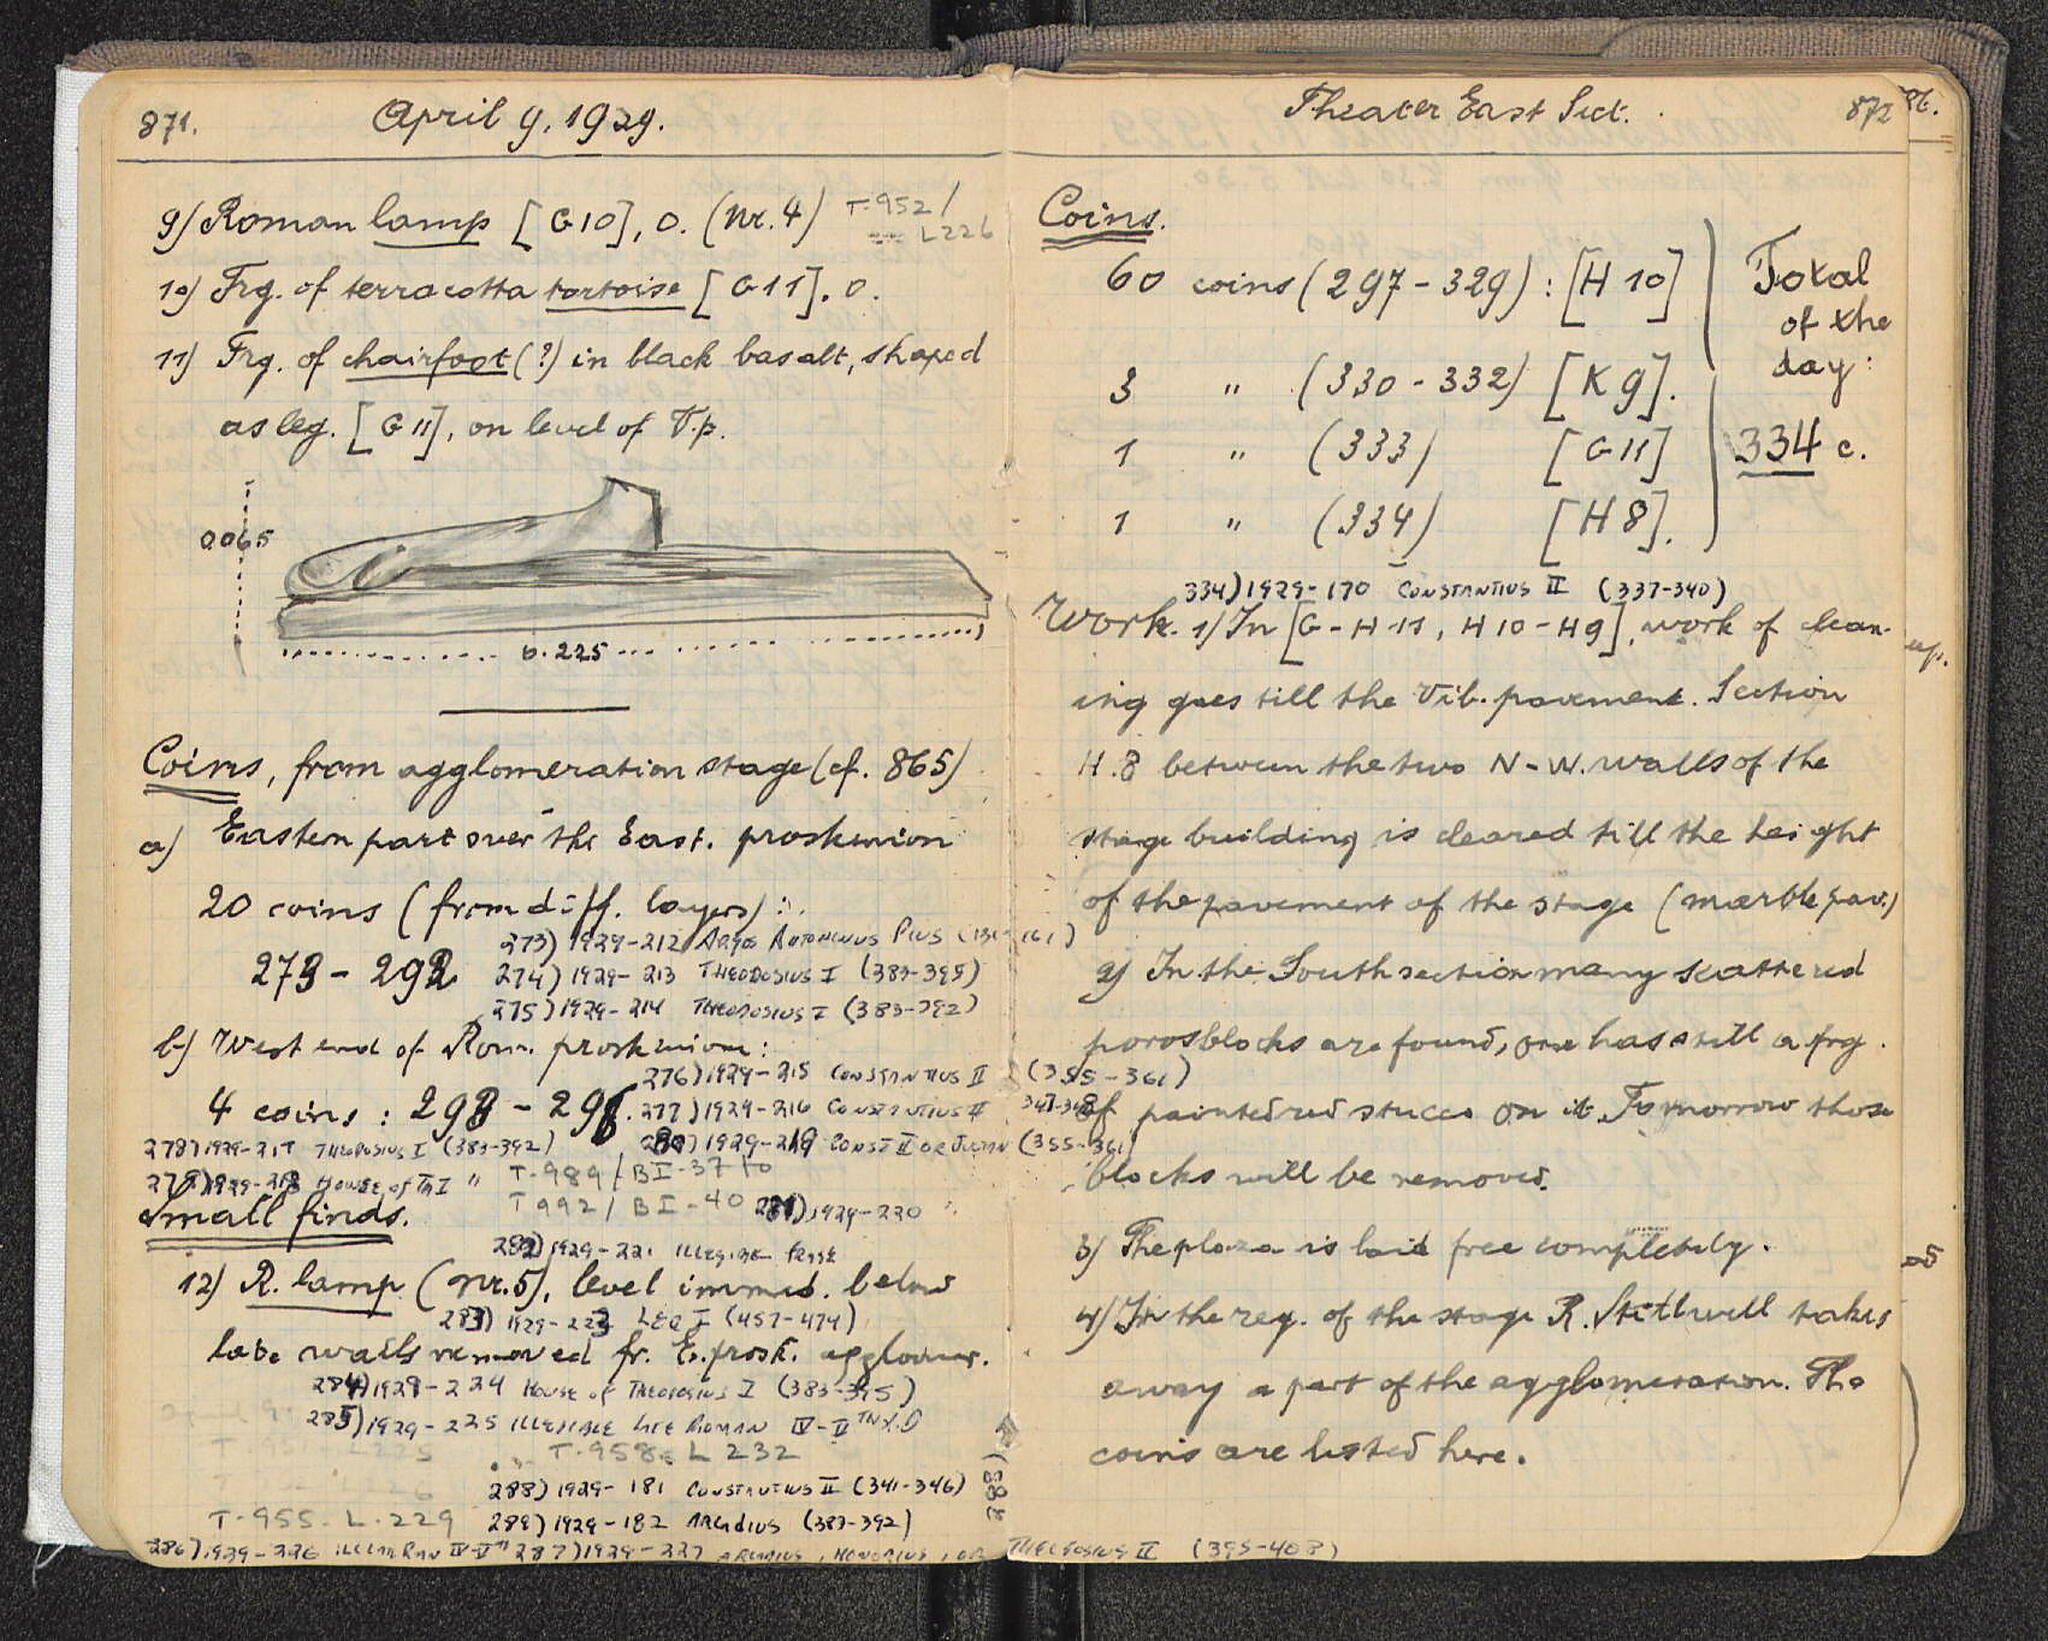 871. April 9, 1929.
9) Roman lamp [G10], o. (Nr. 4) T-952/
L226
10) Frg. of terracotta tortoise [G11]. o.
11) Frg. of chairfoot (?) in black basalt, shaped
as leg. [G11], on level of V.p.
0.065
0.225
Coins, from agglomeration stage (cf. 865)
a) Eastern part over the East. proskenion
20 coins (from diff. layers):
273) 1929-212 Argos Antoninus Pius (138-161)
273 - 292 274) 1929-213 Theodosius I (383-395)
275) 1929-214 Theodosius I (383-392)
b) West end of Rom. proskenion:
276) 1929-215 Constantius II (355-361)
4 coins: 293 - 296. 277) 1929-216 Constantius II 347-348
278) 1929-217 Theodosius I (383-392) 280) 1929-219 Const II or Julian (355-361)
279) 1929-218 House of Th I " T-989/BI-37 to
T992/BI-40 281) 1929-220 "
Small finds.
282) 1929-221 Illegible
12) R. lamp (Nr. 5), level immed. below
283) 1929-223 Leo I (457-474)
late walls removed fr. E. prosk. agglomer.
284) 1929-224 House of Theodosius I (383-395)
285) 1929-225 Illegible Late Roman IV-V TH A.D
T-958. L 232
288) 1929-181 Constantius II (341-346)
T-955. L.229 289) 1929-182 Arcadius (383-392)
286) 1929-226 IV-V TH 287) 1929-227 Arcadius, Honorius, or Theodosius II (395-408)
(288
Theater East Sect. 872
Coins.
60 coins (297-329): [H 10] Total
of the
day:
3 " (330-332) [K9].
1 " (333) [G11] 334 c.
1 " (334) [H8].
334) 1929-170 Constantius II (337-340)
Work. 1) In [G-H 11, H10-H9], work of clean-
ing goes till the Vib. pavement. Section
H.8 between the two N-W. walls of the
stage building is cleared till the height
of the pavement of the stage (marble pav.)
2) In the South section many scattered
porosblocks are found, one has still a frg.
of painted red stucco on it. Tomorrow those
blocks will be removed.
3) The plaza is laid free completely.
4) In the reg. of the stage R. Stillwell takes
away a part of the agglomeration. The
coins are listed here.